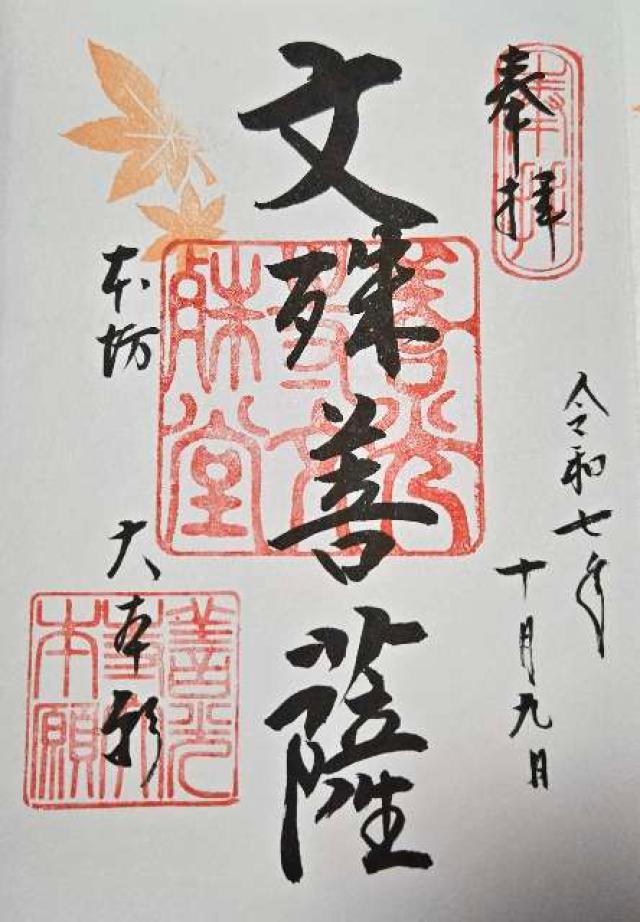 奉拝
奉拝
令和七年
十月九日
文殊菩薩
善光
寺文
殊堂
本坊 大本願
善光
寺大
本願